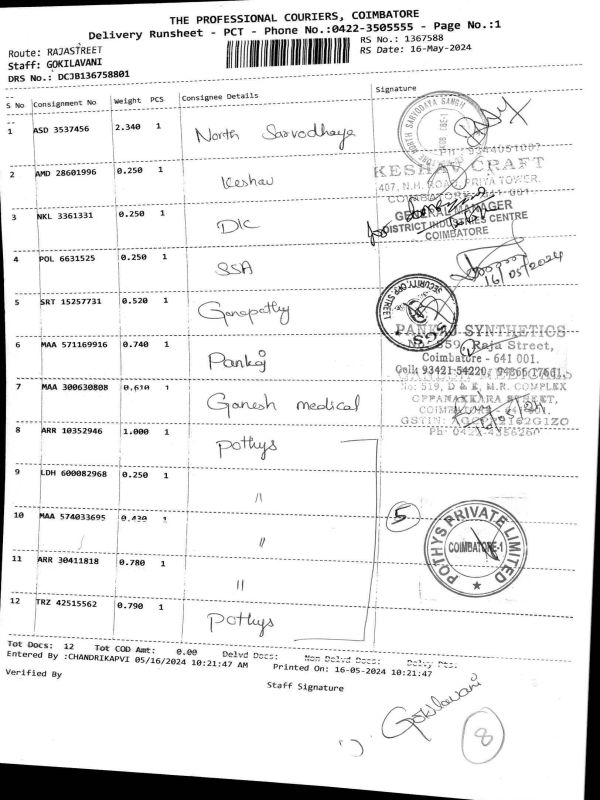 THE PROFESSIONAL COURIERS, COIMBATORE
Delivery Runsheet - PCT - Phone No.:0422-3505555 - Page No.:1
Route: RAJASTREET
RS No.: 1367588
Staff: GOKILAVANI
RS Date: 16-May-2024
DRS No.: DCJB136758801
S No Consignment No Weight PCS Consignee Details Signature
1 ASD 3537456 2.340 1 North Sarvodhaya
2 AMD 28601996 0.250 1 Keshav
KESHAV CRAFT
407, N.H. ROAD, PRIYA TOWER,
COIMBATORE - 641 001.
3 NKL 3361331 0.250 1 DIC
GENERAL MANAGER
DISTRICT INDUSTRIES CENTRE
COIMBATORE
4 POL 6631525 0.250 1 SSA
16/05/2024
5 SRT 15257731 0.520 1 Ganapathy
SECURITY, OPP. STREET
SCS
6 MAA 571169916 0.740 1 Pankaj
PANKAJ SYNTHETICS
No. 359, Raja Street,
Coimbatore - 641 001.
Cell: 93421 54220, 94866 17661
7 MAA 300630808 0.610 1 Ganesh medical
No: 519, D & E, M.R. COMPLEX
OPPANAKKARA STREET,
COIMBATORE - 641 001.
8 ARR 10352946 1.000 1 Pothys
9 LDH 600082968 0.250 1 "
10 MAA 574033695 0.430 1 "
5
POTHYS PRIVATE LIMITED
COIMBATORE-1
11 ARR 30411818 0.780 1 "
12 TRZ 42515562 0.790 1 Pothys
Tot Docs: 12 Tot COD Amt: 0.00 Delvd Docs: Non Delvd Docs: Delvy Pts:
Entered By :CHANDRIKAPVI 05/16/2024 10:21:47 AM Printed On: 16-05-2024 10:21:47
Verified By
Staff Signature
Gokilavani
8